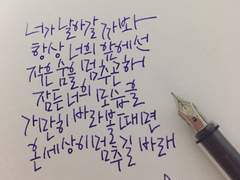 너가 날아갈까봐
항상 너의 앞에선
잠시 숨을 멈추곤 해
잠든 너의 모습을
가만히 바라볼때면
온세상이 멈추길 바래